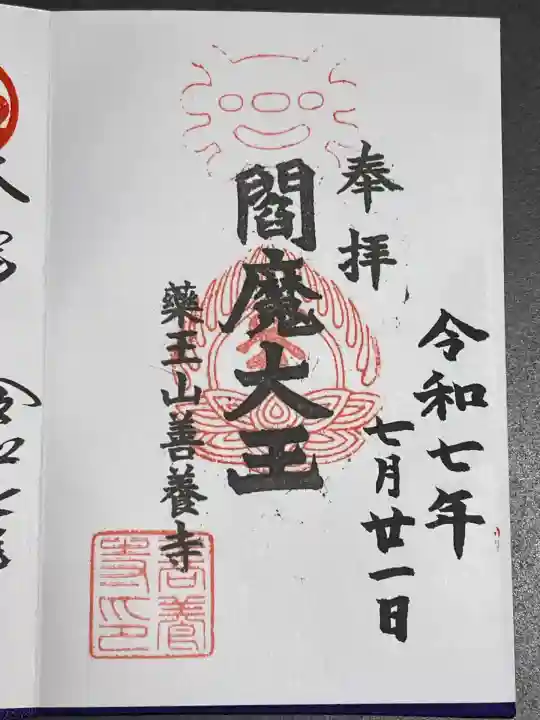 令和七年
七月廿一日
奉拝
閻魔大王
藥王山善養寺
善養
寺印